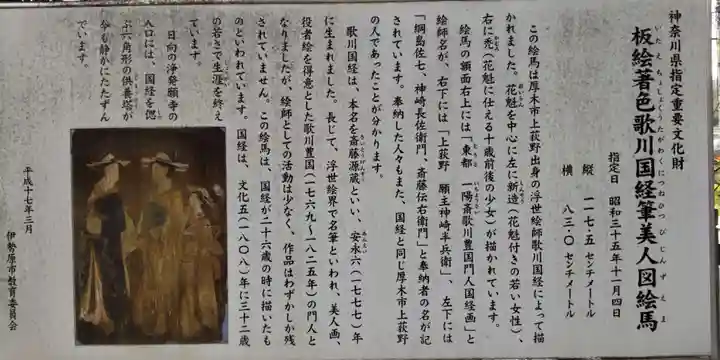 神奈川県指定重要文化財
板絵著色歌川国経筆美人図絵馬
いたえちゃくしょくうたがわくにつねひつびじんずえま
指定日　昭和三十五年十一月四日
縦　一一七・五　センチメートル
横　八三・〇　センチメートル
この絵馬は厚木市上荻野出身の浮世絵師歌川国経によって描
かれました。花魁を中心に左に新造（花魁付きの若い女性）、
右に禿（花魁に仕える十歳前後の少女）が描かれています。
絵馬の額面右上には「東都　一陽斎歌川豊国門人国経画」と
絵師名が、右下には「上荻野　願主神崎半兵衛」、左下には
「綱島佐七、神崎長佐衛門、斎藤伝右衛門」と奉納者の名が記
されています。奉納した人々もまた、国経と同じ厚木市上荻野
の人であったことが分かります。
歌川国経は、本名を斎藤源蔵といい、安永六（一七七七）年
に生まれました。長じて、浮世絵界で名筆といわれ、美人画、
役者絵を得意とした歌川豊国（一七六九～一八二五年）の門人と
なりましたが、絵師としての活動は少なく、作品はわずかしか残
されていません。この絵馬は、国経が二十六歳の時に描いたも
のといわれています。国経は、文化五（一八〇八）年に三十二歳
の若さで生涯を終え
ています。
日向の浄発願寺の
入口には、国経を偲
ぶ六角形の供養塔が
今も静かにたたずん
でいます。
平成十七年三月
伊勢原市教育委員会